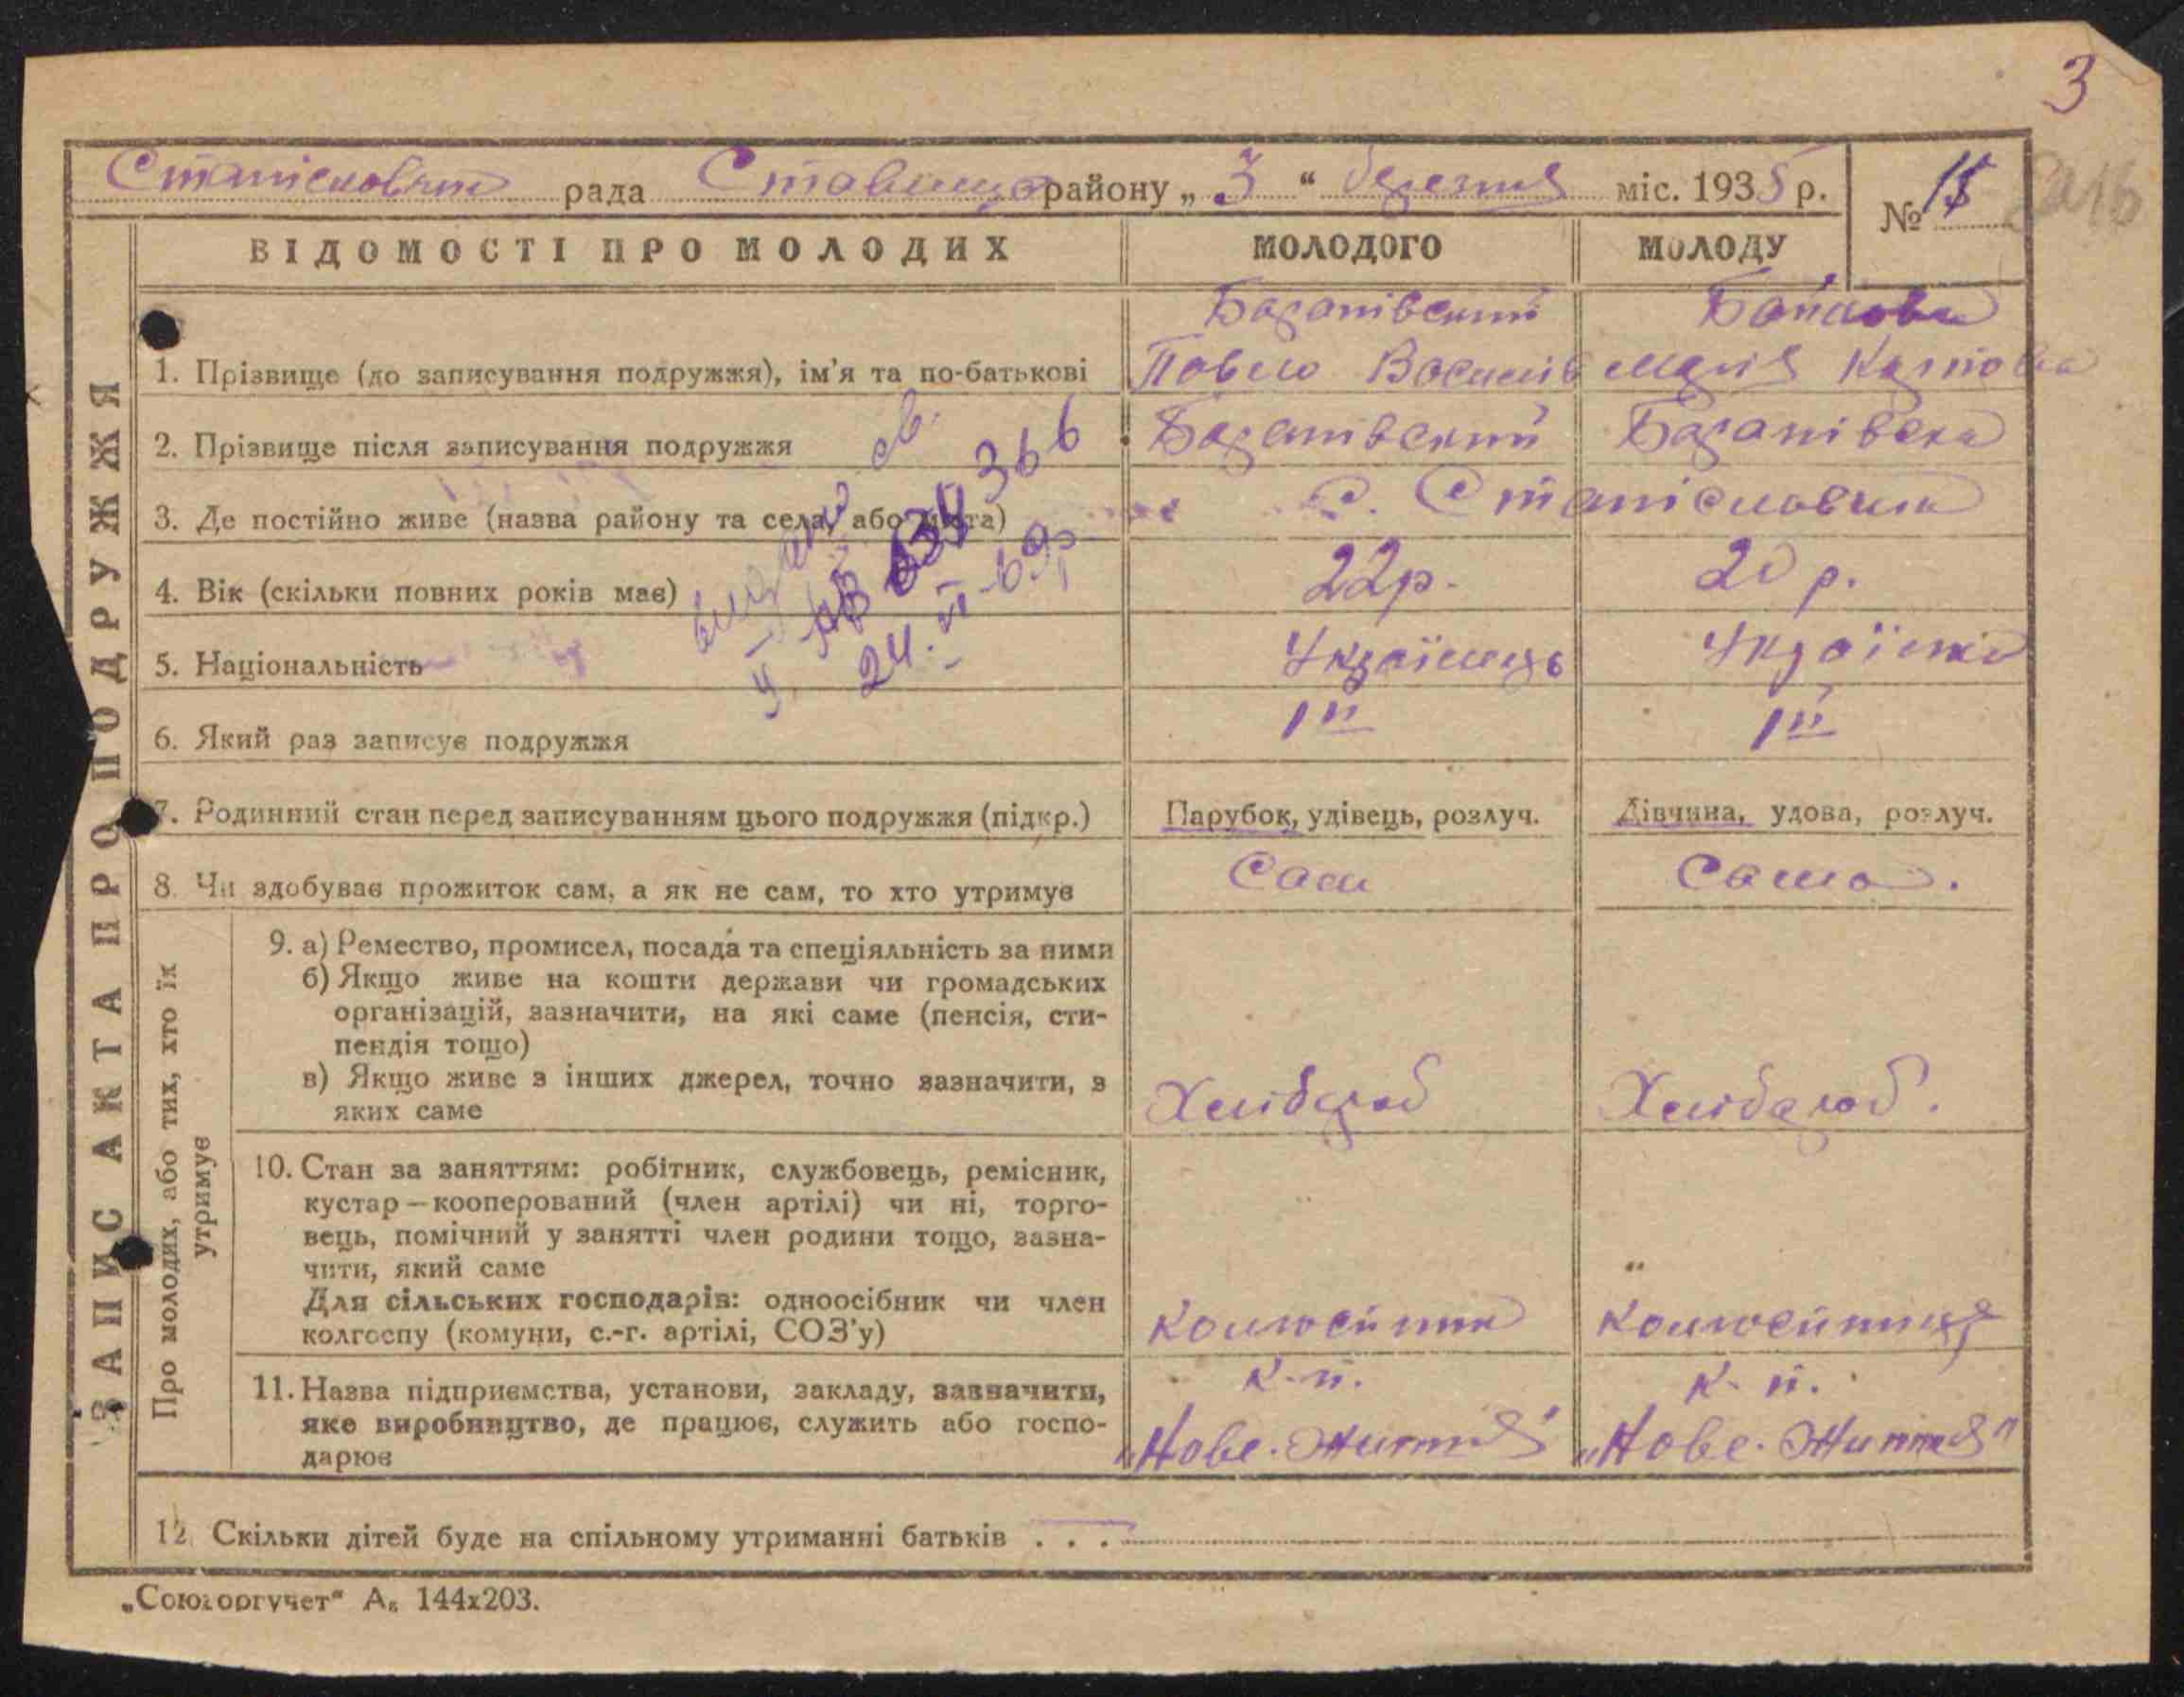 3
Станіславчик рада Ставище району „ 3 “ березня міс. 1935 р.
№
ВІДОМОСТІ ПРО МОЛОДИХ МОЛОДОГО МОЛОДУ
ЗАПИС АКТА ПРО ПОДРУЖЖЯ
1. Прізвище (до записування подружжя), ім'я та по-батькові
Павло Василів Марія Карпова
2. Прізвище після записування подружжя
3. Де постійно живе (назва району та села, або міста) с. Станіславчик
4. Вік (скільки повних років має) 22р. 20 р.
5. Національність Українець Українка
6. Який раз записує подружжя 1й 1й
7. Родинний стан перед записуванням цього подружжя (підкр.) Парубок, удівець, розлуч. Дівчина, удова, розлуч.
8. Чи здобуває прожиток сам, а як не сам, то хто утримує Сам Сама.
Про молодих, або тих, хто їх утримує
9. а) Ремество, промисел, посада та спеціяльність за ними
б) Якщо живе на кошти держави чи громадських
організацій, зазначити, на які саме (пенсія, сти-
пендія тощо)
в) Якщо живе з інших джерел, точно зазначити, з
яких саме Хлібороб Хлібороб.
10. Стан за заняттям: робітник, службовець, ремісник,
кустар — кооперований (член артілі) чи ні, торго-
вець, помічний у занятті член родини тощо, зазна-
чити, який саме
Для сільських господарів: одноосібник чи член
колгоспу (комуни, с.-г. артілі, СОЗ'у)
11. Назва підприємства, установи, закладу, зазначити,
яке виробництво, де працює, служить або госпо-
дарює
„Нове. Життя“ „Нове. Життя“
12. Скільки дітей буде на спільному утриманні батьків . . .
„Союзоргучет“ 144х203.
24. VI-69р.